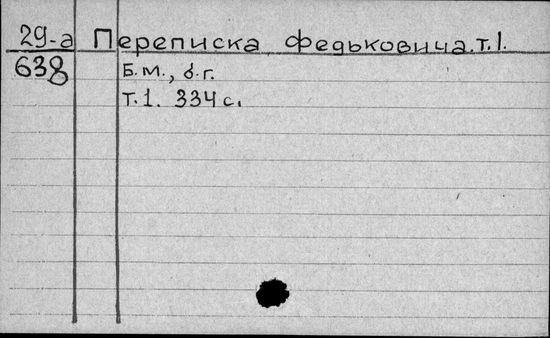 29-а Переписка Федьковича. т.1.
638 Б.м., б.г.
т.1. 334 с.